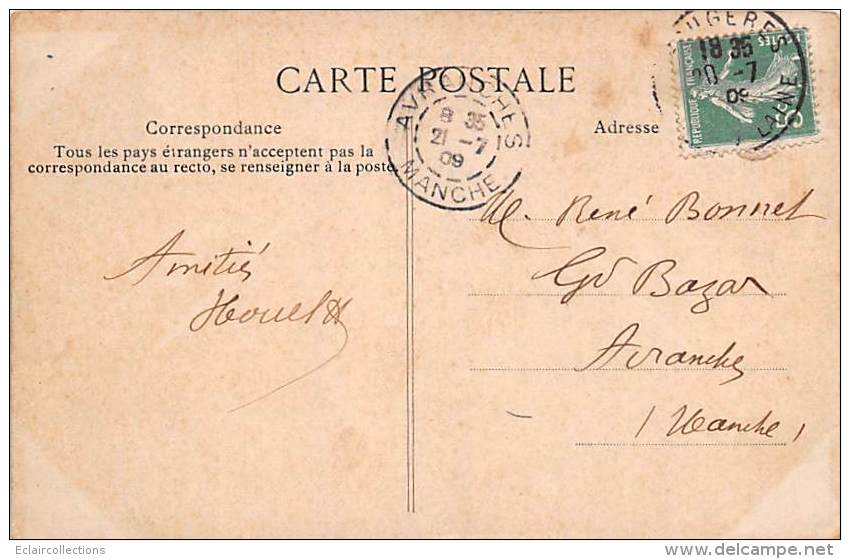 CARTE POSTALE
Correspondance
Tous les pays étrangers n'acceptent pas la
correspondance au recto, se renseigner à la poste
Amitiés
Adresse
M. René Bonnet
Gd Bazar
Avranches
(Manche)
AVRANCHES
8 35
21 -7
09
MANCHE
18 35
20 -7
09
REPUBLIQUE FRANÇAISE
POSTES
Eclaircollections
delcampe.net